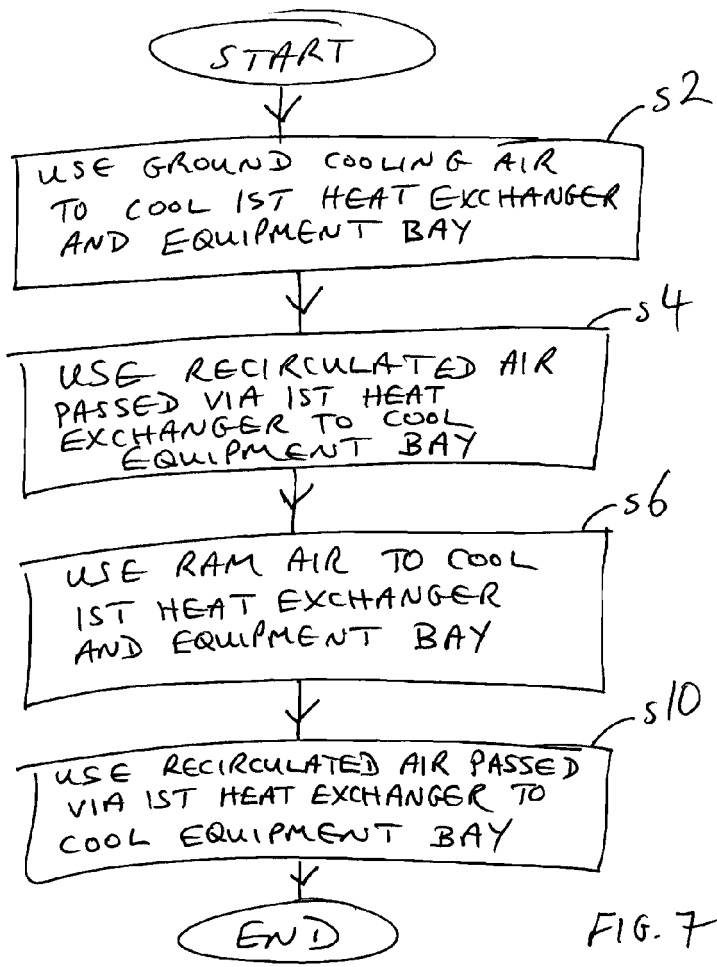 START
s2
USE GROUND COOLING AIR
TO COOL 1ST HEAT EXCHANGER
AND EQUIPMENT BAY
s4
USE RECIRCULATED AIR
PASSED VIA 1ST HEAT
EXCHANGER TO COOL
EQUIPMENT BAY
s6
USE RAM AIR TO COOL
1ST HEAT EXCHANGER
AND EQUIPMENT BAY
s10
USE RECIRCULATED AIR PASSED
VIA 1ST HEAT EXCHANGER TO
COOL EQUIPMENT BAY
END
FIG. 7